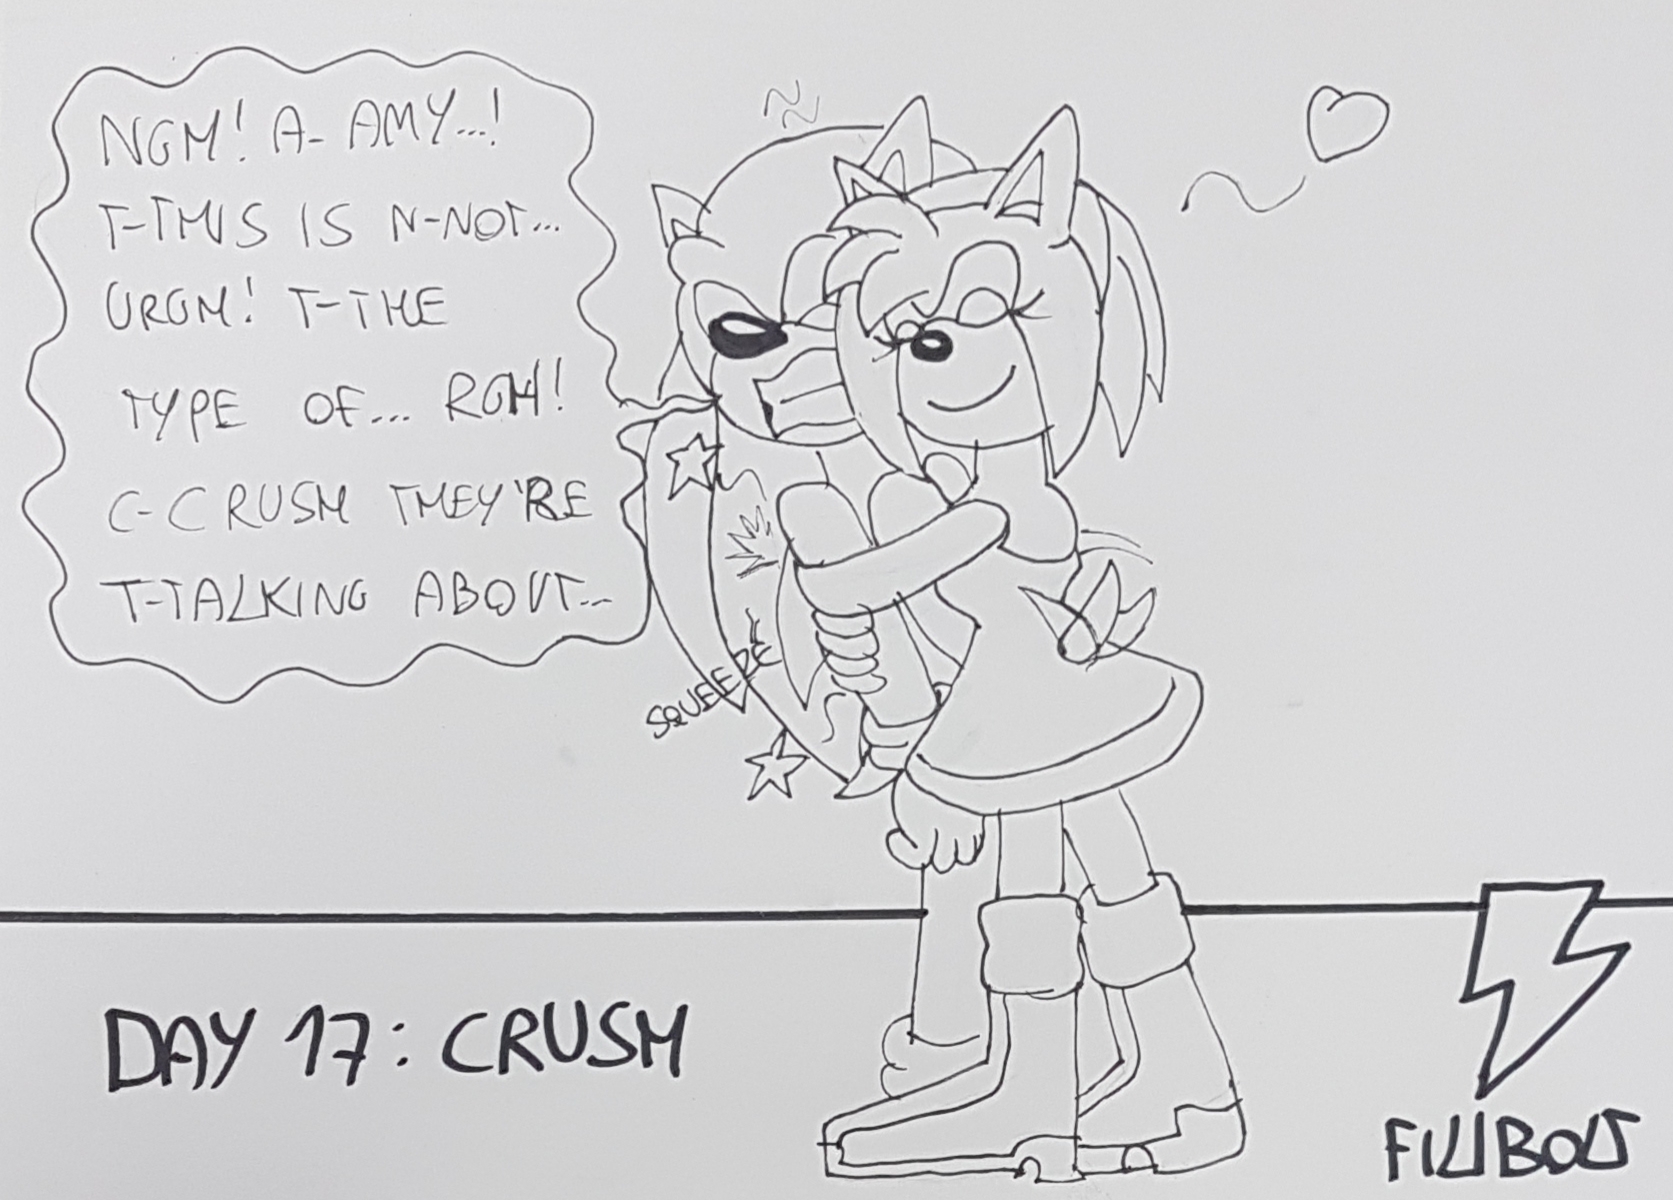 NGH! A- AMY...!
T-THIS IS N-NOT...
URGH! T-THE
TYPE OF... RGH!
C-CRUSH THEY'RE
T-TALKING ABOUT...
SQUEEZE
DAY 17: CRUSH
FILLBOLT